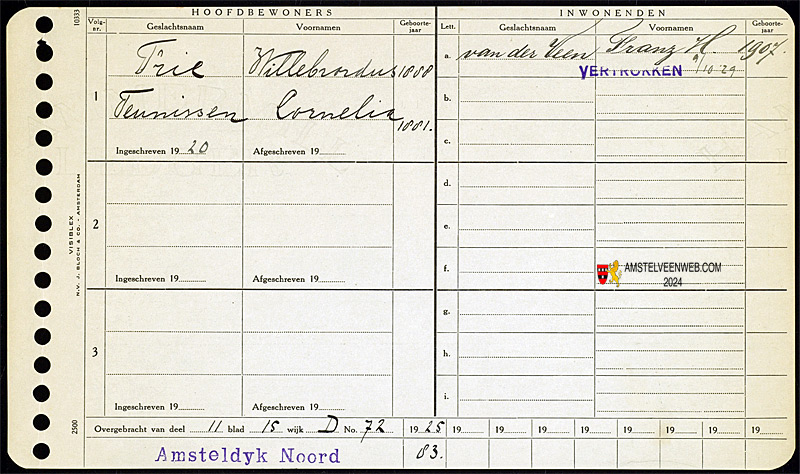 HOOFDBEWONERS
INWONENDEN
Volg-nr.
Geslachtsnaam
Voornamen
Geboorte-jaar
Lett.
Geslachtsnaam
Voornamen
Geboorte-jaar
10333
1
Trie Willebrordus 1888
Teunissen Cornelia 1881.
Ingeschreven 1920 Afgeschreven 19
a. van der Veen Franz H. 1907.
VERTROKKEN 9/10 '29
b.
c.
2
Ingeschreven 19 Afgeschreven 19
d.
e.
f.
AMSTELVEENWEB.COM
2024
3
Ingeschreven 19 Afgeschreven 19
g.
h.
i.
VISIBLEX
N.V. J. BLOCH & CO. - AMSTERDAM
2500
Overgebracht van deel 11 blad 15 wijk D No. 72 1925 19 19 19 19 19 19 19 19
Amsteldyk Noord 83.